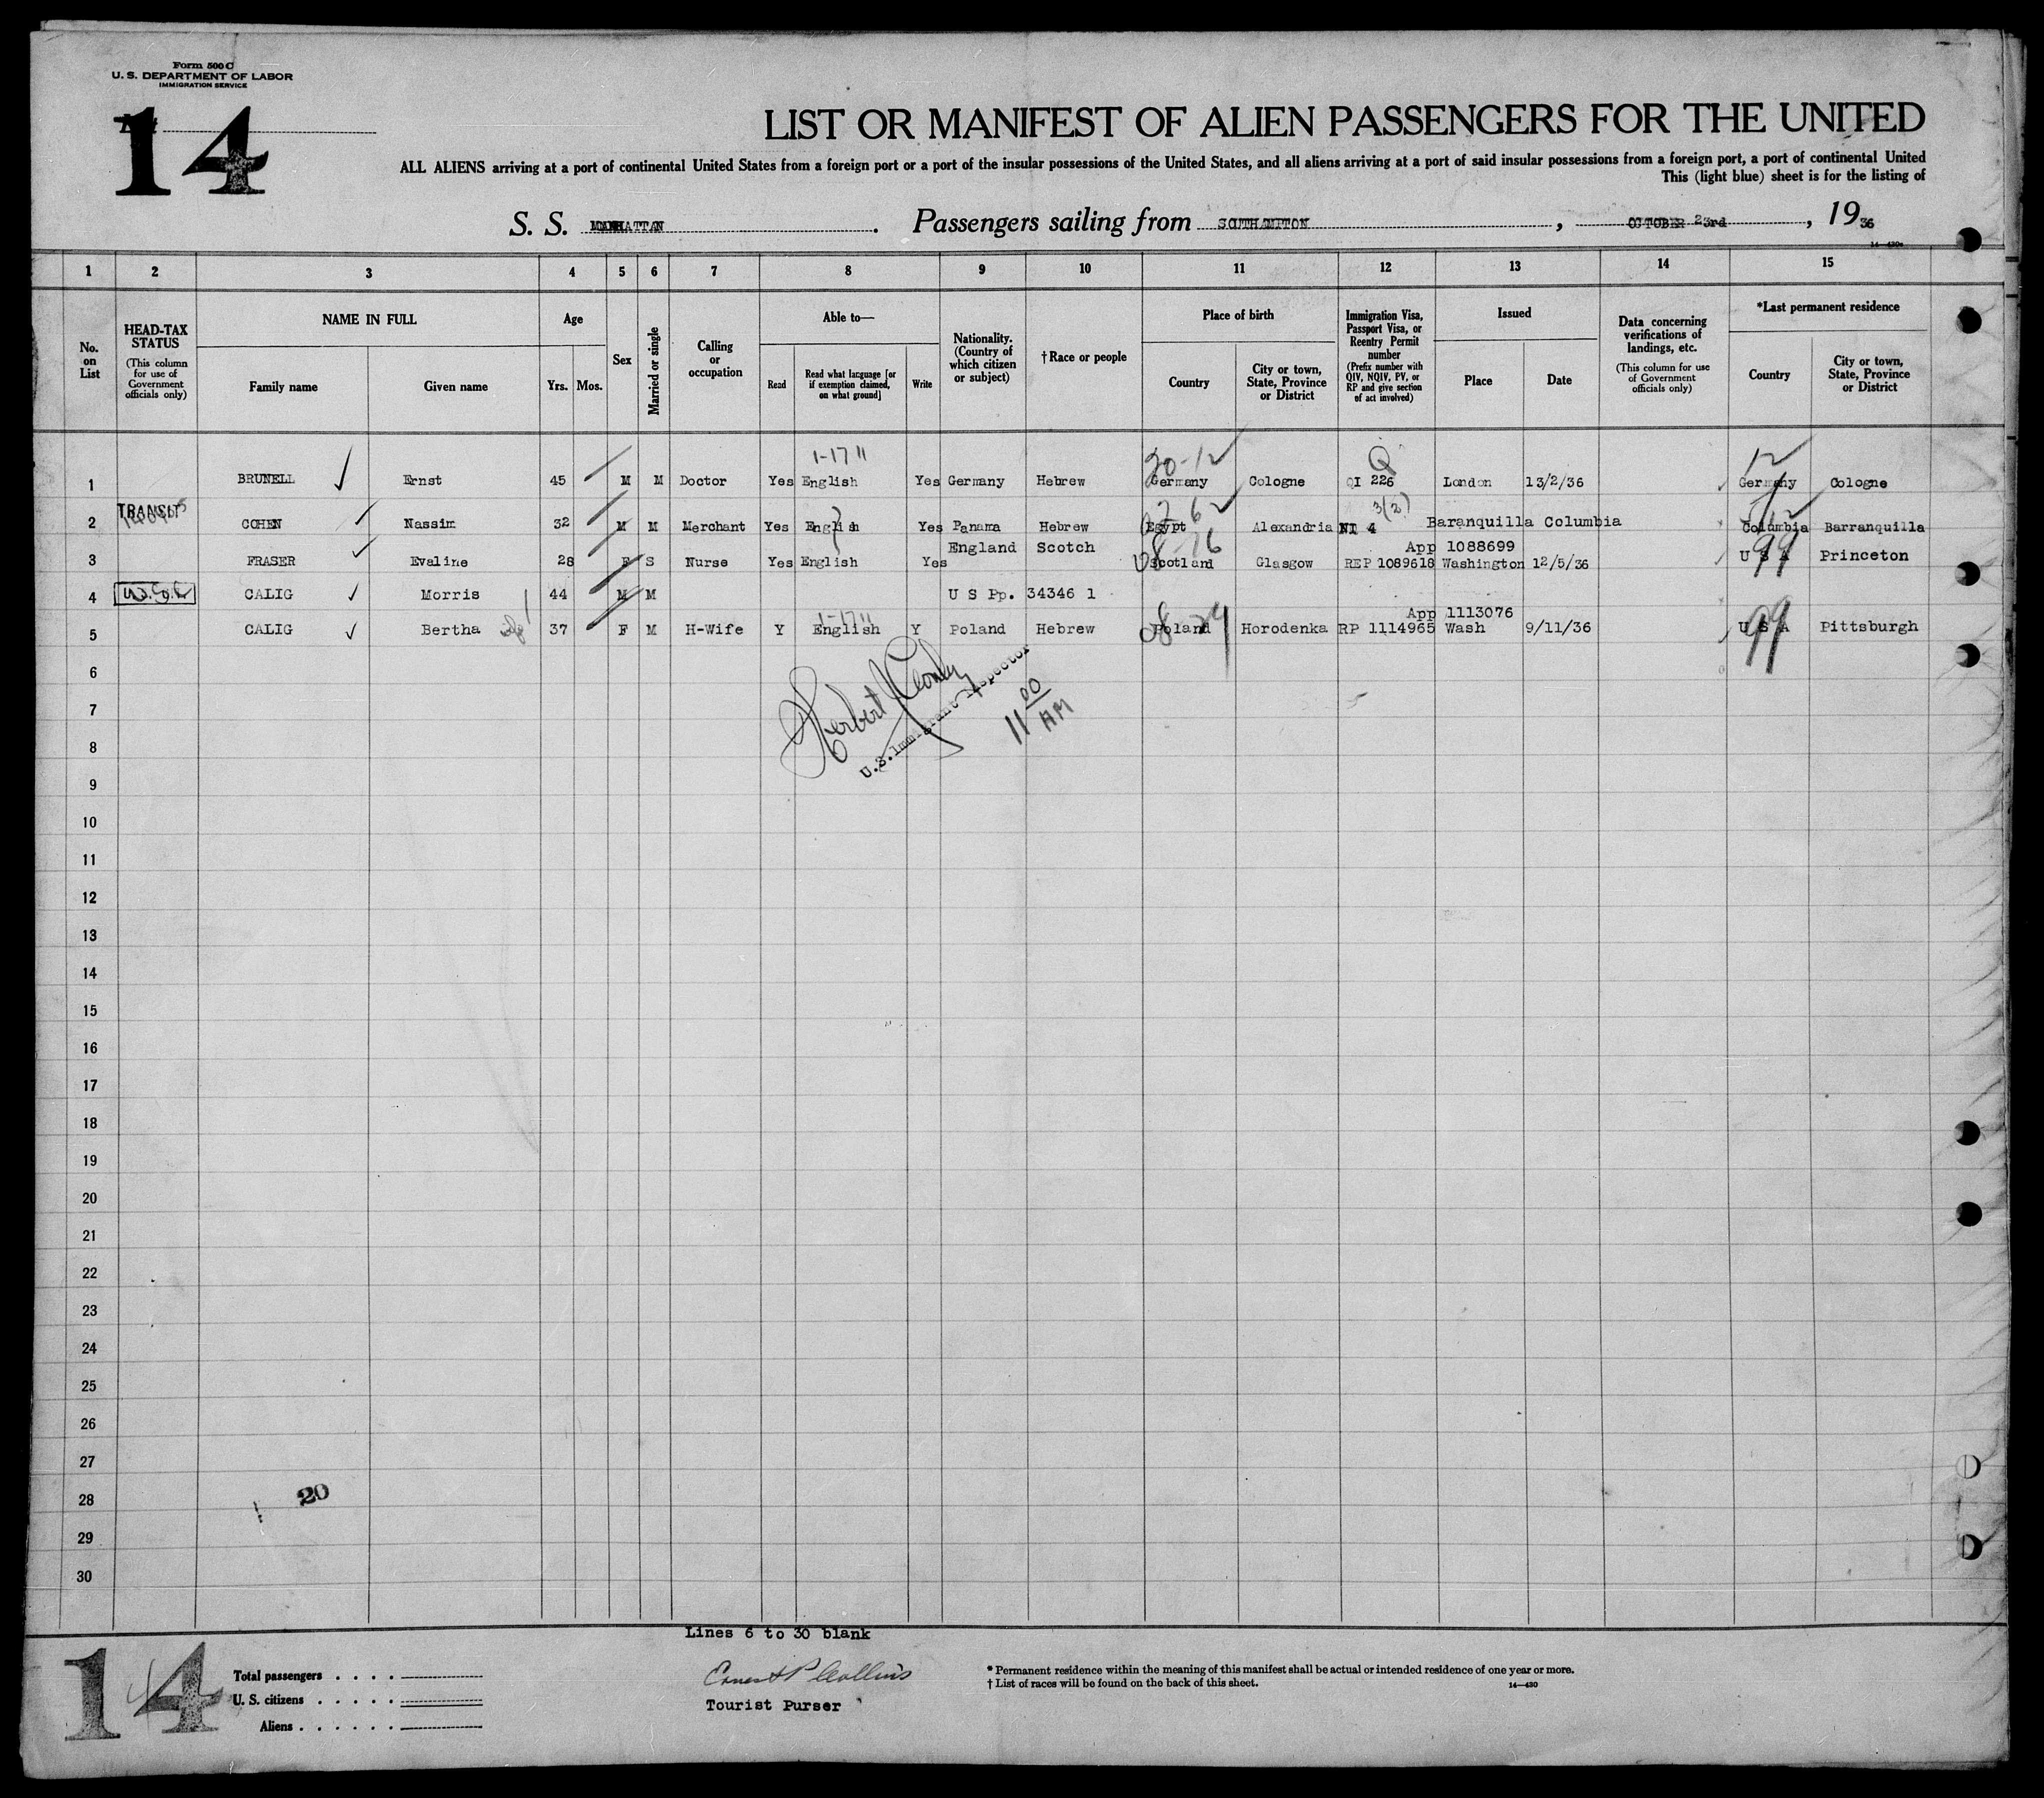 Form 500 C
U. S. DEPARTMENT OF LABOR
IMMIGRATION SERVICE
14
LIST OR MANIFEST OF ALIEN PASSENGERS FOR THE UNITED
ALL ALIENS arriving at a port of continental United States from a foreign port or a port of the insular possessions of the United States, and all aliens arriving at a port of said insular possessions from a foreign port, a port of continental United
This (light blue) sheet is for the listing of
S. S. MANHATTAN. Passengers sailing from SOUTHAMPTON, OCTOBER 23rd, 1936
14—430a
1 2 3 4 5 6 7 8 9 10 11 12 13 14 15
No. on List
HEAD-TAX STATUS
(This column for use of Government officials only)
NAME IN FULL
Family name Given name
Age
Yrs. Mos.
Sex
Married or single
Calling or occupation
Able to—
Read
Read what language [or if exemption claimed, on what ground]
Write
Nationality. (Country of which citizen or subject)
†Race or people
Place of birth
Country
City or town, State, Province or District
Immigration Visa, Passport Visa, or Reentry Permit number
(Prefix number with QIV, NQIV, PV, or RP and give section of act involved)
Issued
Place Date
Data concerning verifications of landings, etc.
(This column for use of Government officials only)
*Last permanent residence
Country
City or town, State, Province or District
1-17 11 30-12 Q 12
1 BRUNELL Ernst 45 M M Doctor Yes English Yes Germany Hebrew Germany Cologne QI 226 London 13/2/36 Germany Cologne
TRANSIT 3(2)
2 COHEN Nassim 32 M M Merchant Yes English Yes Panama Hebrew Egypt Alexandria NI 4 Baranquilla Columbia Columbia Barranquilla
England Scotch App 1088699
3 FRASER Evaline 28 F S Nurse Yes English Yes Scotland Glasgow REP 1089618 Washington 12/5/36 U S A Princeton
99
4 CALIG Morris 44 M M U S Pp. 34346 1
1-17 11 App 1113076
5 CALIG Bertha 37 F M H-Wife Y English Y Poland Hebrew Poland Horodenka RP 1114965 Wash 9/11/36 U S A Pittsburgh
99
6
U.S. Immigrant Inspector
11 00 AM
7
8
9
10
11
12
13
14
15
16
17
18
19
20
21
22
23
24
25
26
27
28 20
29
30
Lines 6 to 30 blank
14
Total passengers
U. S. citizens
Aliens
Ernest P Collins
Tourist Purser
* Permanent residence within the meaning of this manifest shall be actual or intended residence of one year or more.
† List of races will be found on the back of this sheet.
14—430